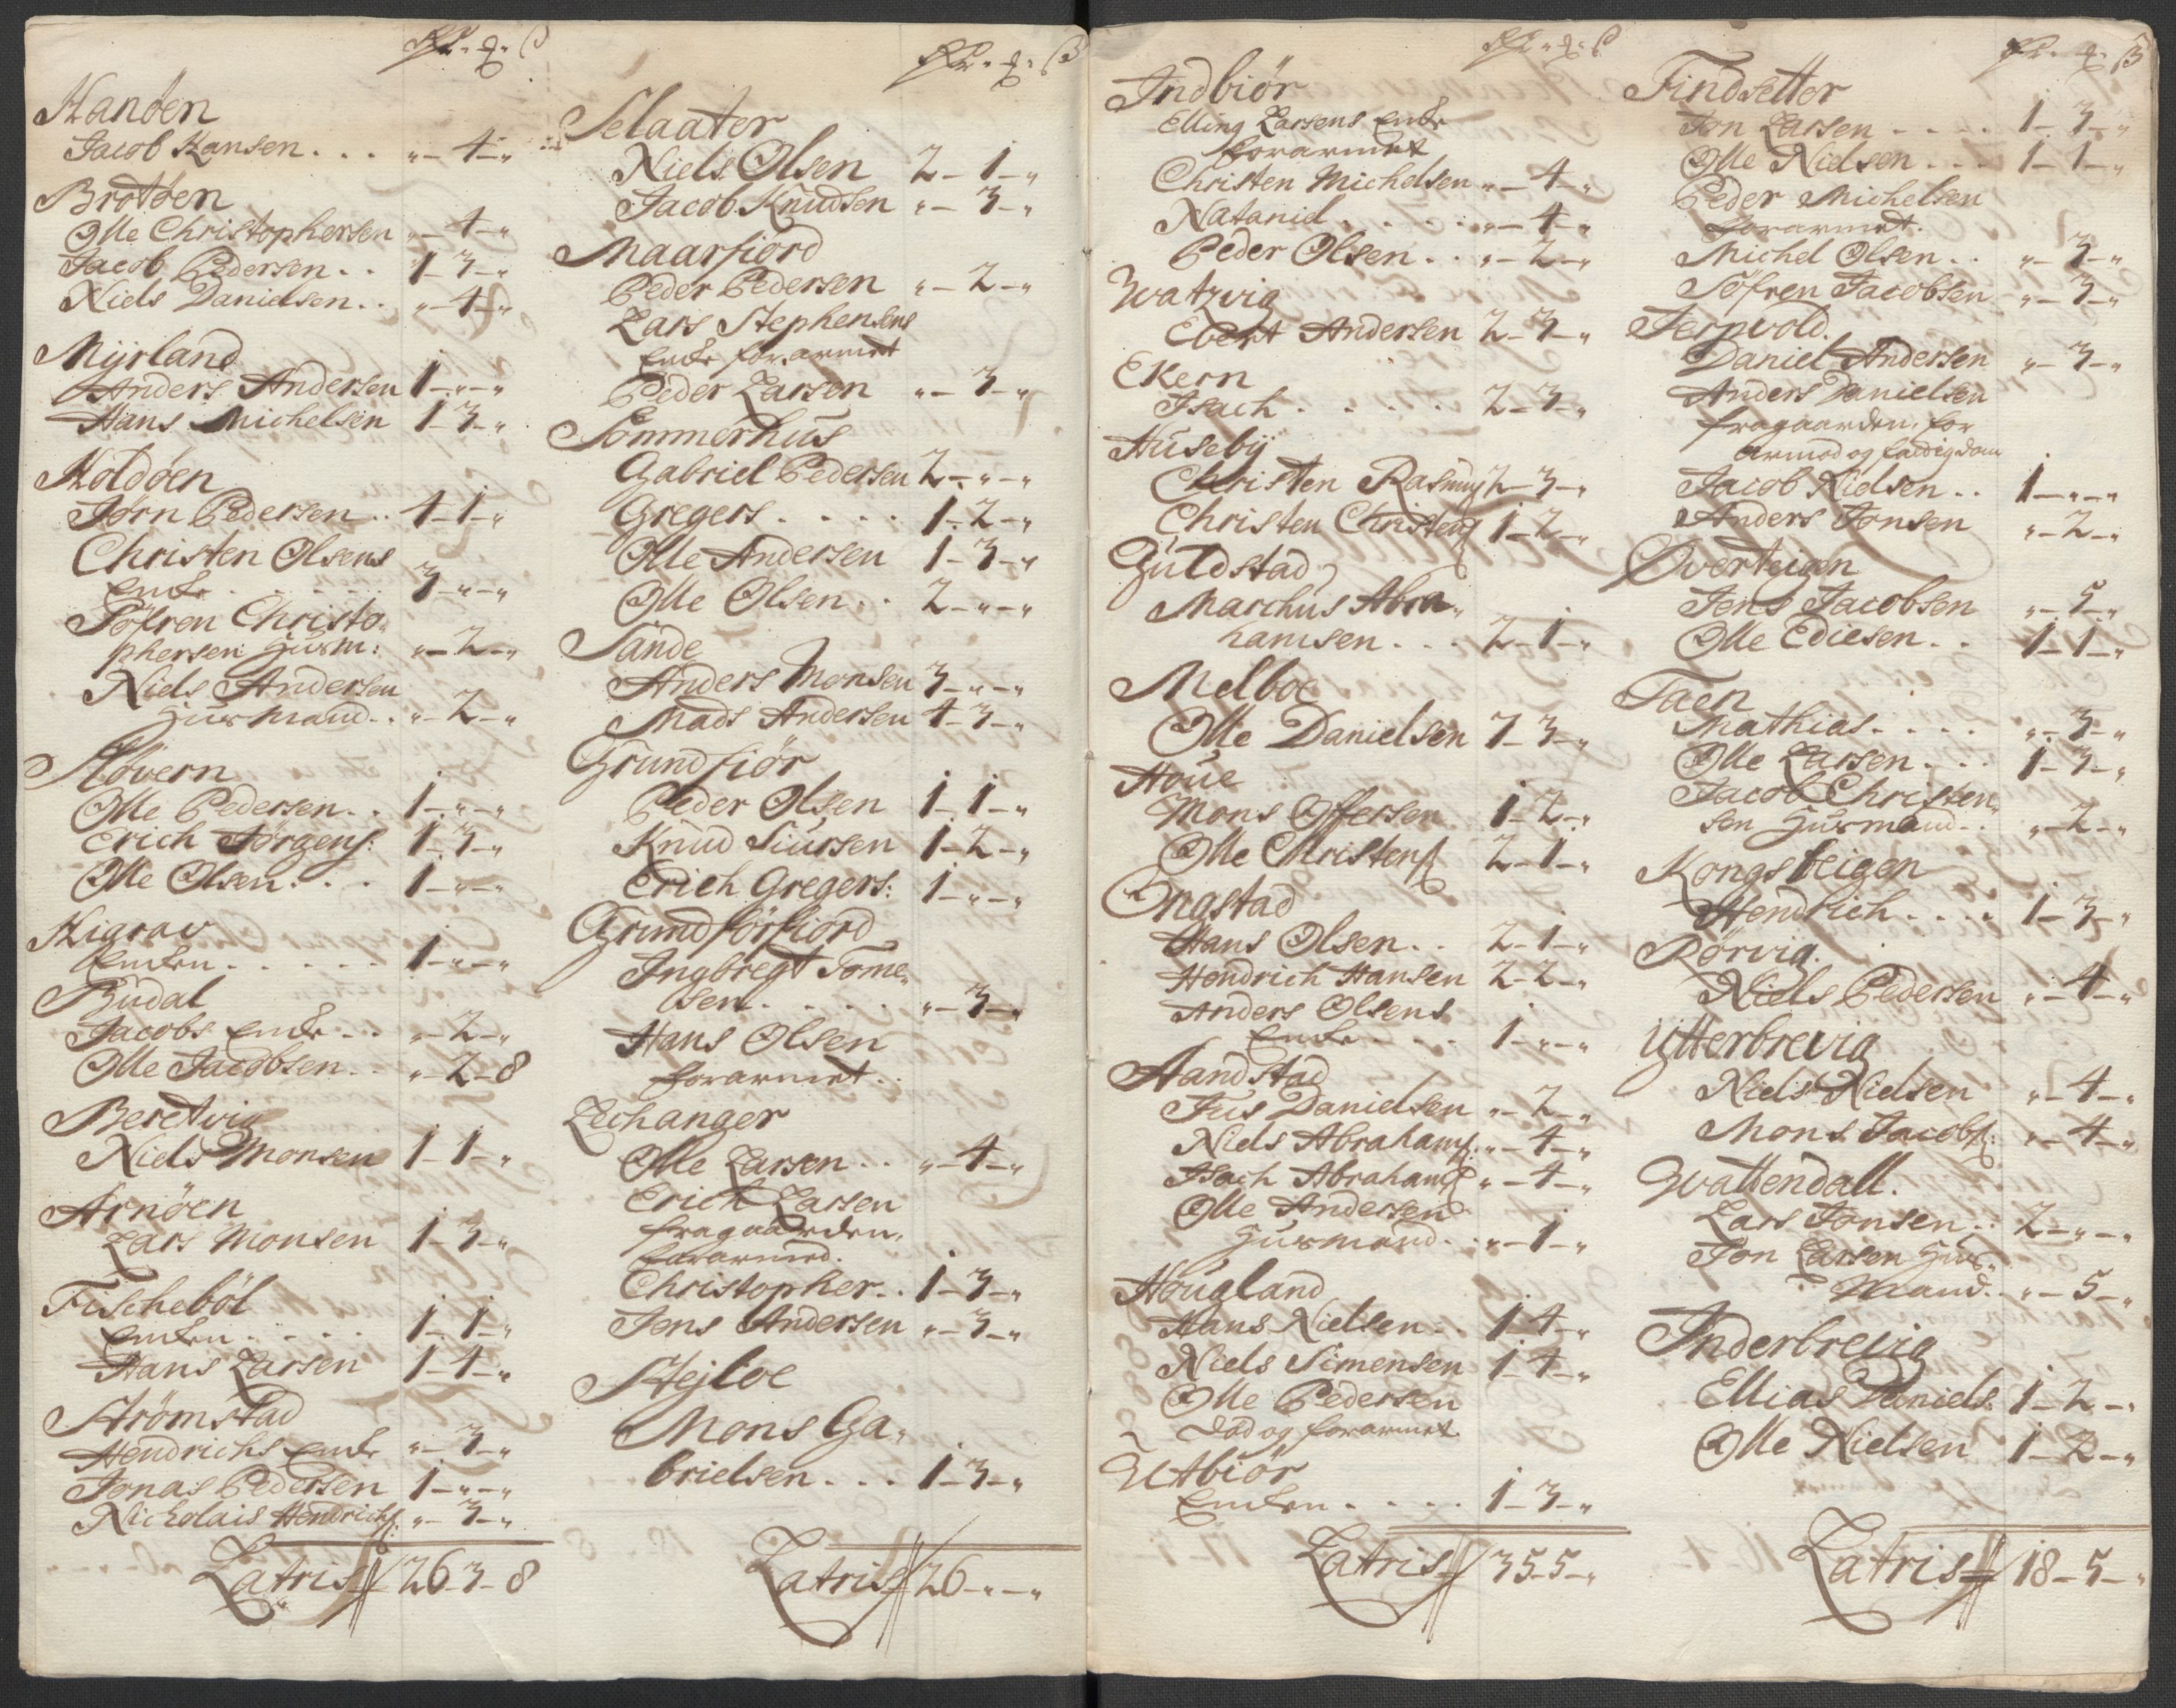 Hanöen
Jacob Hansen . . . „ – 4 – „
Brotöen
Olle Christophersen „ – 4 – „
Jacob Pedersen . . 1 – 3 – „
Niels Danielsen . . „ – 4 – „
Mijrland
Anders Andersen 1 – „ – „
Hans Michelsen 1 – 3 – „
Holdöen
Jörn Pedersen . . 4 – 1 – „
Christen Olsens
Encke . . . . 3 – „ – „
Söfren Christo„
phersen Huusm: „ – 2 – „
Niels Andersen
Huusmand . . „ – 2 – „
Hövern
Olle Pedersen . . 1 – „ – „
Erich Jörgens: 1 – 3 – „
Olle Olsen . . . 1 – „ – „
Higrav
Encken . . . . . 1 – „ – „
Budal
Jacobs Encke . . „ – 2 – „
Olle Jacobsen . . „ – 2 – 8
Beretvig
Niels Monsen 1 – 1 – „
Arnöen
Lars Monsen 1 – 3 – „
Fischeböl
Encken . . . . 1 – 1 – „
Hans Larsen 1 – 4 – „
Strömstad
Hendrichs Encke „ – 3 – „
Jonas Pedersen 1 – „ – „
Nicholais Hendrichs: „ – 3 – „
Latris 26 – 3 – 8
Selaater
Niels Olsen 2 – 1 – „
Jacob Knudsen „ – 3 – „
Maarfiord
Peder Pedersen „ – 2 – „
Lars Stephensens
Encke forarmet
Peder Larsen „ – 3 – „
Sommerhus
Gabriel Pedersen 2 – „ – „
Gregers . . . . 1 – 2 – „
Olle Andersen 1 – 3 – „
Olle Olsen . . 2 – „ – „
Sande
Anders Monsen 3 – „ – „
Mads Andersen 4 – 3 – „
Grundfiör
Peder Olsen 1 – 1 – „
Knud Siursen 1 – 2 – „
Erich Gregers: 1 – „ – „
Grundförfiord
Ingbregt Tome„
sen . . . . . „ – 3 – „
Hans Olsen
forarmet . .
Lechanger
Olle Larsen . . „ – 4 – „
Erich Larsen
fragaarden,
forarmed.
Christopher . . 1 – 3 – „
Jens Andersen „ – 3 – „
Stejloe
Mons Ga„
brielsen . . . 1 – 3 – „
Latris 26 – „ – „
Indbiör
Elling Larsens Encke
forarmet
Christen Michelsen „ – 4 – „
Nataniel . . . . „ – 4 – „
Peder Olsen . . „ – 2 – „
Watzvig
Ebert Andersen 2 – 3 – „
Ekern
Isach . . . . . 2 – 3 – „
Husebij
Christen Rasmus 2 – 3 – „
Christen Christens 1 – 2 – „
Guldstad
Marchus Abra„
hamsen . . . 2 – 1 – „
Melboe
Olle Danielsen 7 – 3 – „
Houe
Mons Offersen 1 – 2 – „
Olle Christens 2 – 1 – „
Ongstad
Hans Olsen . . 2 – 1 – „
Hendrich Hansen 2 – 2 – „
Anders Olsens
Encke . . . . 1 – „ – „
Aandstad
Jus Danielsen „ – 2 – „
Niels Abrahams: „ – 4 – „
Isach Abrahams „ – 4 – „
Olle Andersen
Huusmand . . „ – 1 – „
Hougland
Hans Nielsen . . 1 – 4 – „
Niels Simensen 1 – 4 – „
Olle Pedersen
död og forarmet
Utbiör
Encken . . . . 1 – 3 – „
Latris 35 – 5 – „
Findsetter
Jon Larsen . . . . 1 – 3 – „
Olle Nielsen . . . 1 – 1 – „
Peder Michelsen
forarmet.
Michel Olsen . . „ – 3 – „
Söfren Jacobsen „ – 3 – „
Jerpvold.
Daniel Andersen „ – 3 – „
Anders Danielsen
fragaarden, for
armod og faldigdom
Jacob Nielsen . . 1 – „ – „
Anders Jonsen „ – 2 – „
Overteigen
Jens Jacobsen „ – 5 – „
Olle Ediesen . . 1 – 1 – „
Taen
Mathias . . . . „ – 3 – „
Olle Larsen . . . 1 – 3 – „
Jacob Christen„
sen Huusmand . . „ – 2 – „
Kongsteigen
Hendrich . . . . 1 – 3 – „
Rörvig.
Niels Pedersen „ – 4 – „
Ijtterbrevig
Niels Nielsen „ – 4 – „
Mons Jacobs: „ – 4 – „
Qvattendall.
Lars Jonsen . . 2 – „ – „
Jon Larsen Huus„
mand . . „ – 5 – „
Inderbrevig
Ellias Daniels: 1 – 2 – „
Olle Nielsen 1 – 2 – „
Latris 18 – 5 – „